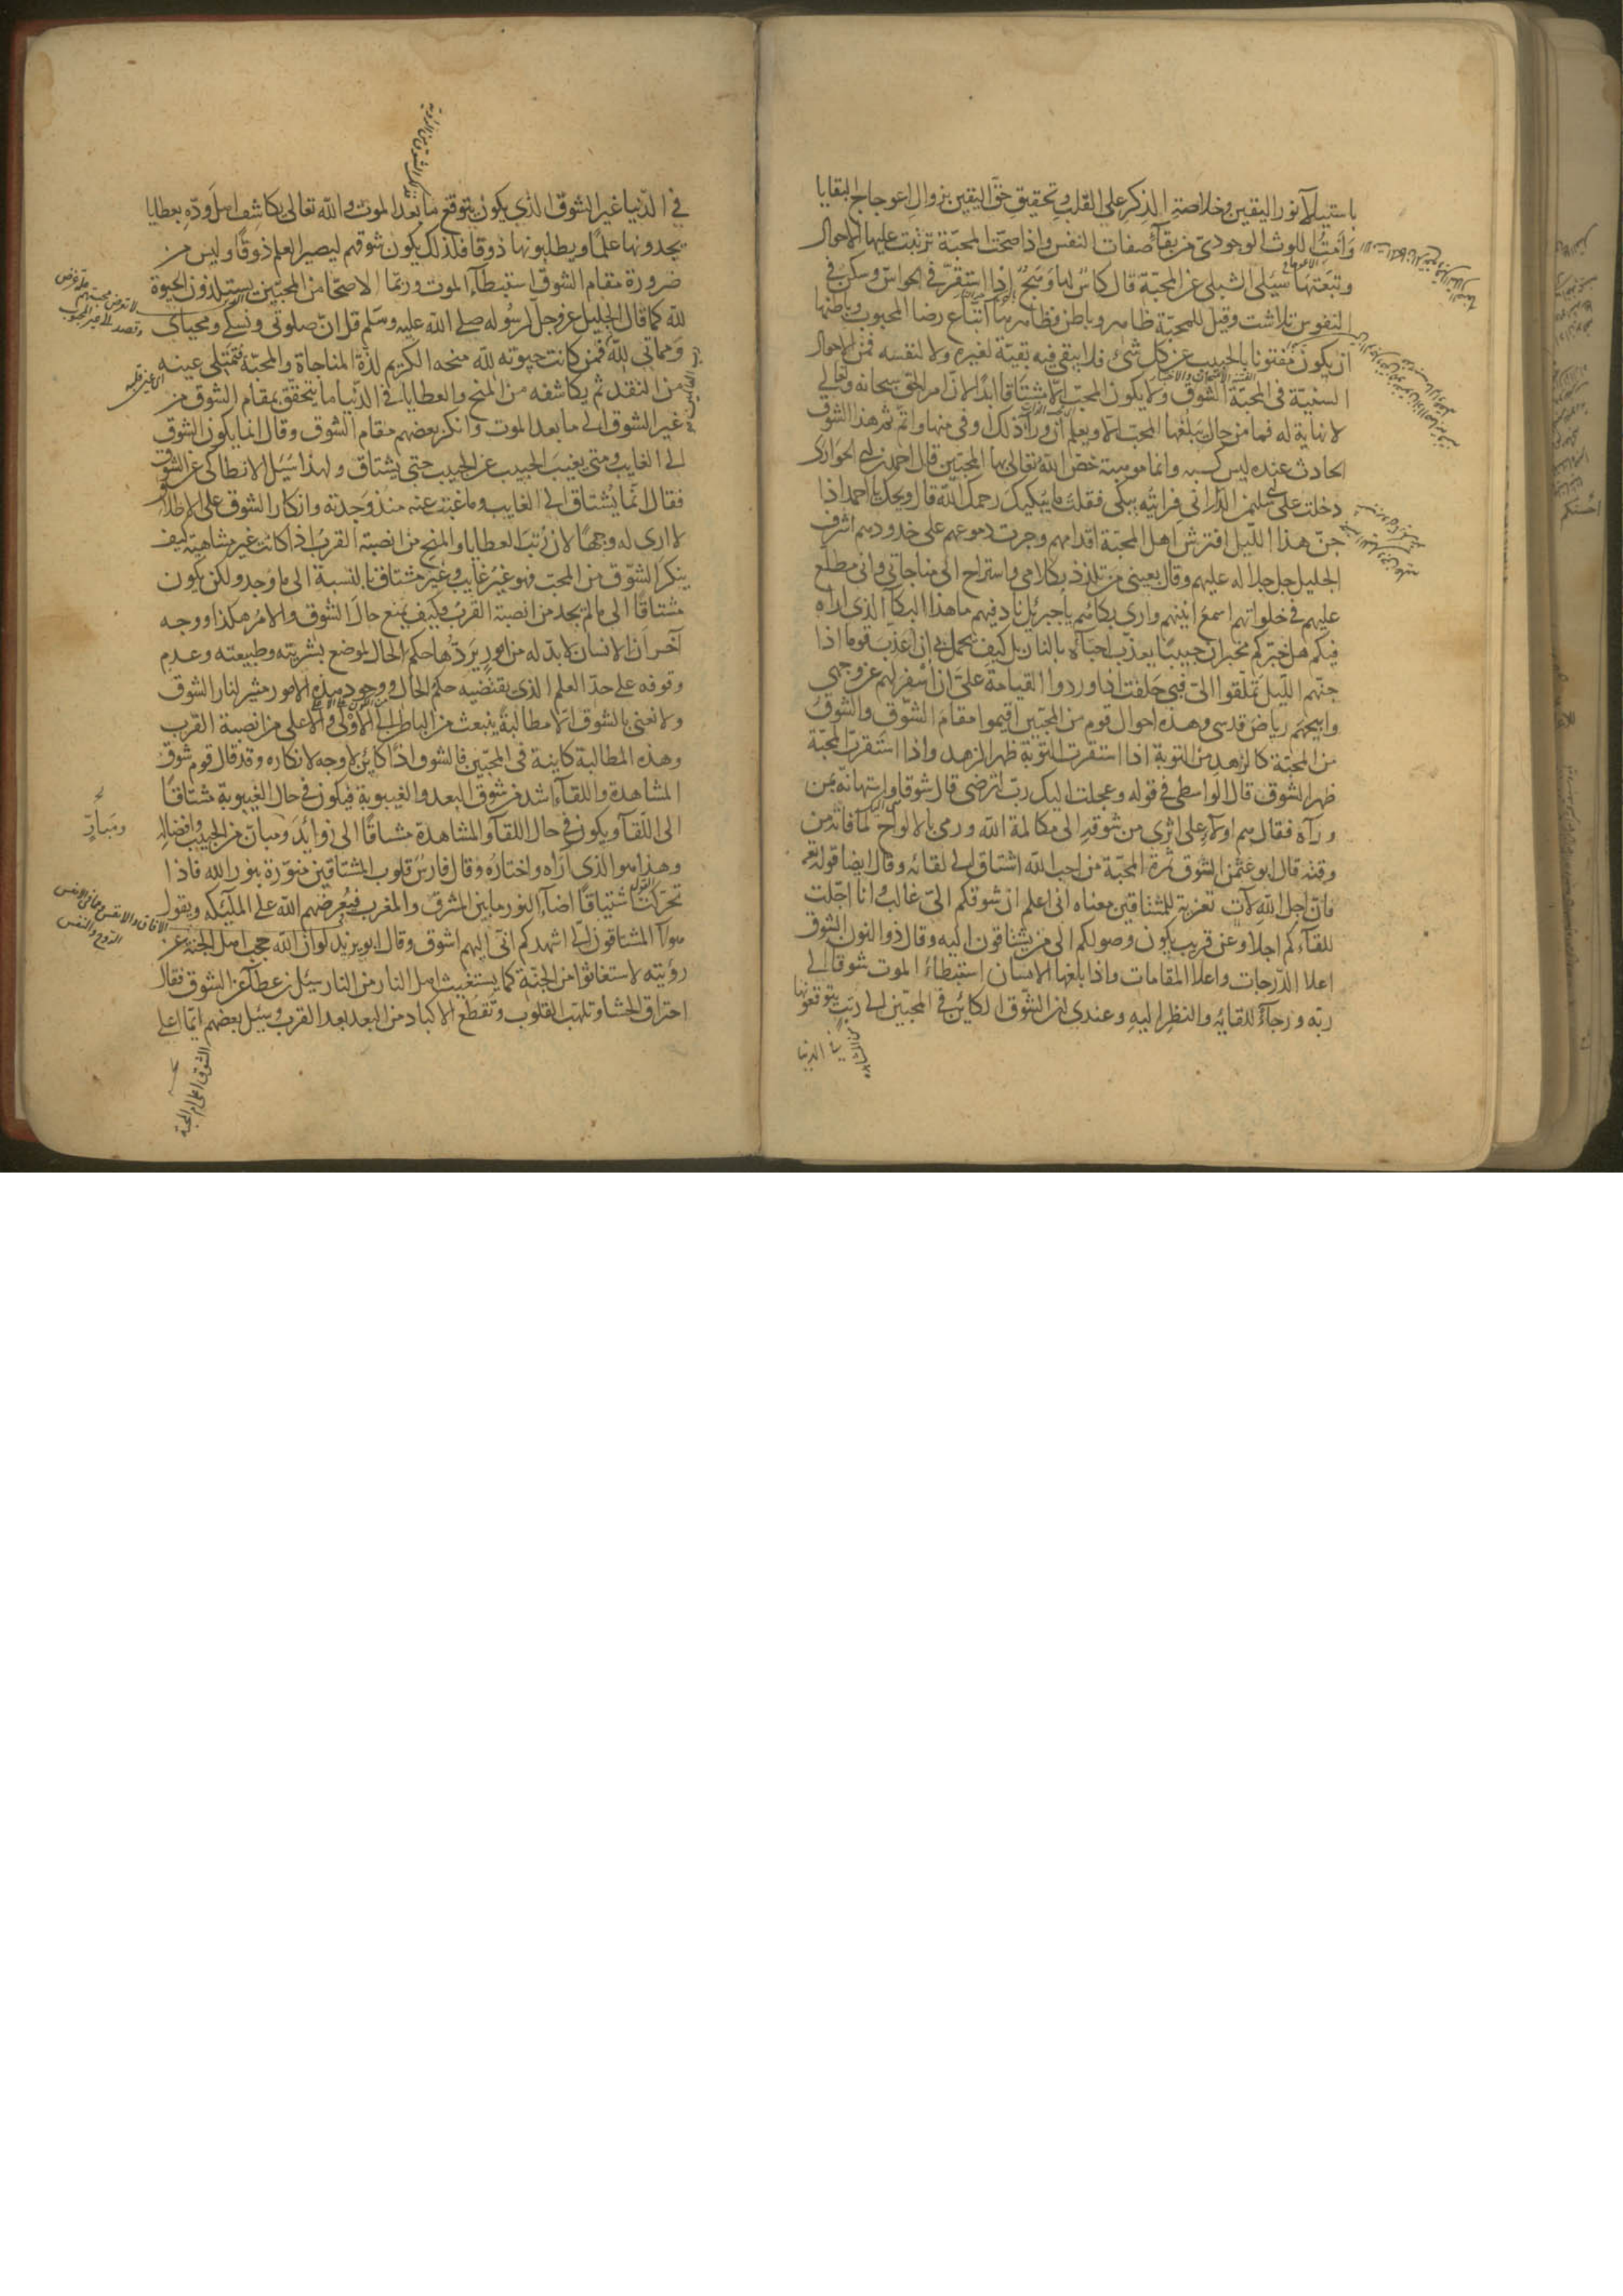 باستيلآ نور اليقين وخلاصة الذكر على القلب وتحقيق حق اليقين بزوال اعوجاج البقايا
وامنت اللوث الوجودي من بقآء صفات النفس واذا صحت المحبة ترتبت عليها الاحوال
وتبعتها سئل الشبلي عن المحبة قال كاس لها وهج اذا استقر في الحواس وسكن في
النفوس تلاشت وقيل للمحبة ظاهر وباطن فظاهرها اتباع رضا المحبوب وباطنها
ان يكون مفتونا بالحبيب عن كل شيء فلا يبقى فيه بقية لغيره ولا لنفسه فمن الاحوال
السنية في المحبة الشوق ولا يكون المحب الا مشتاقا ابدا لان امر الحق سبحانه وتعالى
لا نهاية له فما من حال يبلغها المحب الا ويعلم ان ورآء ذلك اوفى منها واتم ثم هذا الشوق
الحادث عنده ليس كسبه وانما هو موهبة خص الله تعالى بها المحبين قال احمد بن ابي الحواري
دخلت على ابي سليمن الداراني فرأيته يبكي فقلت ما يبكيك رحمك الله قال ويحك يا احمد اذا
جن هذا الليل افترش اهل المحبة اقدامهم وجرت دموعهم على خدودهم اشرف
الجليل جل جلاله عليهم وقال بعيني من تلذذ بكلامي واستراح الى مناجاتي واني مطلع
عليهم في خلواتهم اسمع انينهم وارى بكائهم يا جبرئيل ناد فيهم ما هذا البكآ الذي اراه
فيكم هل خبركم مخبر ان حبيبا يعذب احباه بالنار بل كيف يجمل بي ان اعذب قوما اذا
جنهم الليل تملقوا الي فبي حلفت اذا وردوا القيامة علي ان اسفر لهم عن وجهي
وابيحهم رياض قدسي وهذه احوال قوم من المحبين اقيموا مقام الشوق والشوق
من المحبة كالزهد من التوبة اذا استقرت التوبة ظهر الزهد واذا استقرت المحبة
ظهر الشوق قال الواسطي في قوله وعجلت اليك رب لترضى قال شوقا واستهانة بمن
ورآه فقال هم اولآء على اثري من شوقه الى مكالمة الله ورمى بالالواح لما فاته من
وقته قال ابو عثمن الشوق ثمرة المحبة من احب الله اشتاق الى لقائه وقال ايضا قوله تع
فان اجل الله لآت تعزية للمشتاقين معناه اني اعلم ان شوقكم الي غالب وانا اجلت
للقآءكم اجلا وعن قريب يكون وصولكم الى من يشتاقون اليه وقال ذو النون الشوق
اعلا الدرجات واعلا المقامات واذا بلغها الانسان استبطاء الموت شوقا الى
ربه ورجآء للقايه والنظر اليه وعندي ان الشوق الكائن في المحبين الى رتب يتوقعونها
في الدنيا
في الدنيا غير الشوق الذي يكون بتوقع ما بعد الموت والله تعالى يكاشف اهل وده بعطايا
يجدونها علما ويطلبونها ذوقا فلذلك يكون شوقهم ليصير العلم ذوقا وليس من
ضرورة مقام الشوق استبطآء الموت وربما الاصحا من المحبين يستلذون الحيوة
لله كما قال الجليل عز وجل لرسوله صلى الله عليه وسلم قل ان صلوتي ونسكي ومحياي
ومماتي لله فمن كانت حيوته لله منحه الكريم لذة المناجاة والمحبة فتمتلي عينه
من النقد ثم يكاشفه من المنح والعطايا في الدنيا ما يتحقق بمقام الشوق من
غير الشوق الى ما بعد الموت وانكر بعضهم مقام الشوق وقال انما يكون الشوق
الى الغايب ومتى يغيب الحبيب عن الحبيب حتى يشتاق ولهذا سئل الانطاكي عن الشوق
فقال انما يشتاق الى الغايب وما غبت عنه منذ وجدته وانكار الشوق على الاطلاق
لا ارى له وجها لان رتب العطايا والمنح من انصبة القرب اذا كانت غير متناهية كيف
ينكر الشوق من المحب فهو غير غايب وغير مشتاق بالنسبة الى ما وجد ولكن يكون
مشتاقا الى ما لم يجد من انصبة القرب فكيف يمنع حال الشوق والامر هكذا ووجه
آخر ان الانسان لا بد له من امور يردها حكم الحال لموضع بشريته وطبيعته وعدم
وقوفه على حد العلم الذي يقتضيه حكم الحال ووجود هذه الامور مثير لنار الشوق
ولا نعني بالشوق الا مطالبة ينبعث من الباطن الى الاولى والاعلى من انصبة القرب
وهذه المطالبة كاينة في المحبين فالشوق اذا كائن لا وجه لانكاره وقد قال قوم شوق
المشاهدة واللقآء اشد من شوق البعد والغيبوبة فيكون في حال الغيبوبة مشتاقا
الى اللقآ ويكون في حال اللقآ والمشاهدة مشتاقا الى زوائد ومبار من الحبيب وافضاله
ومبار
وهذا هو الذي اراه واختاره وقال فارس قلوب المشتاقين منورة بنور الله فاذا
تحركت اشتياقا اضآء النور ما بين المشرق والمغرب فيعرضهم الله على الملئكة ويقول
هولآ المشتاقون الي اشهدكم اني اليهم اشوق وقال ابو يزيد لو ان الله حجب اهل الجنة عن
رؤيته لاستغاثوا من الجنة كما يستغيث اهل النار من النار سئل ابن عطآ عن الشوق فقال
احتراق الحشا وتلهب القلوب وتقطع الاكباد من البعد بعد القرب وسئل بعضهم ايما اعلى
الشوق اعلى ام المحبة